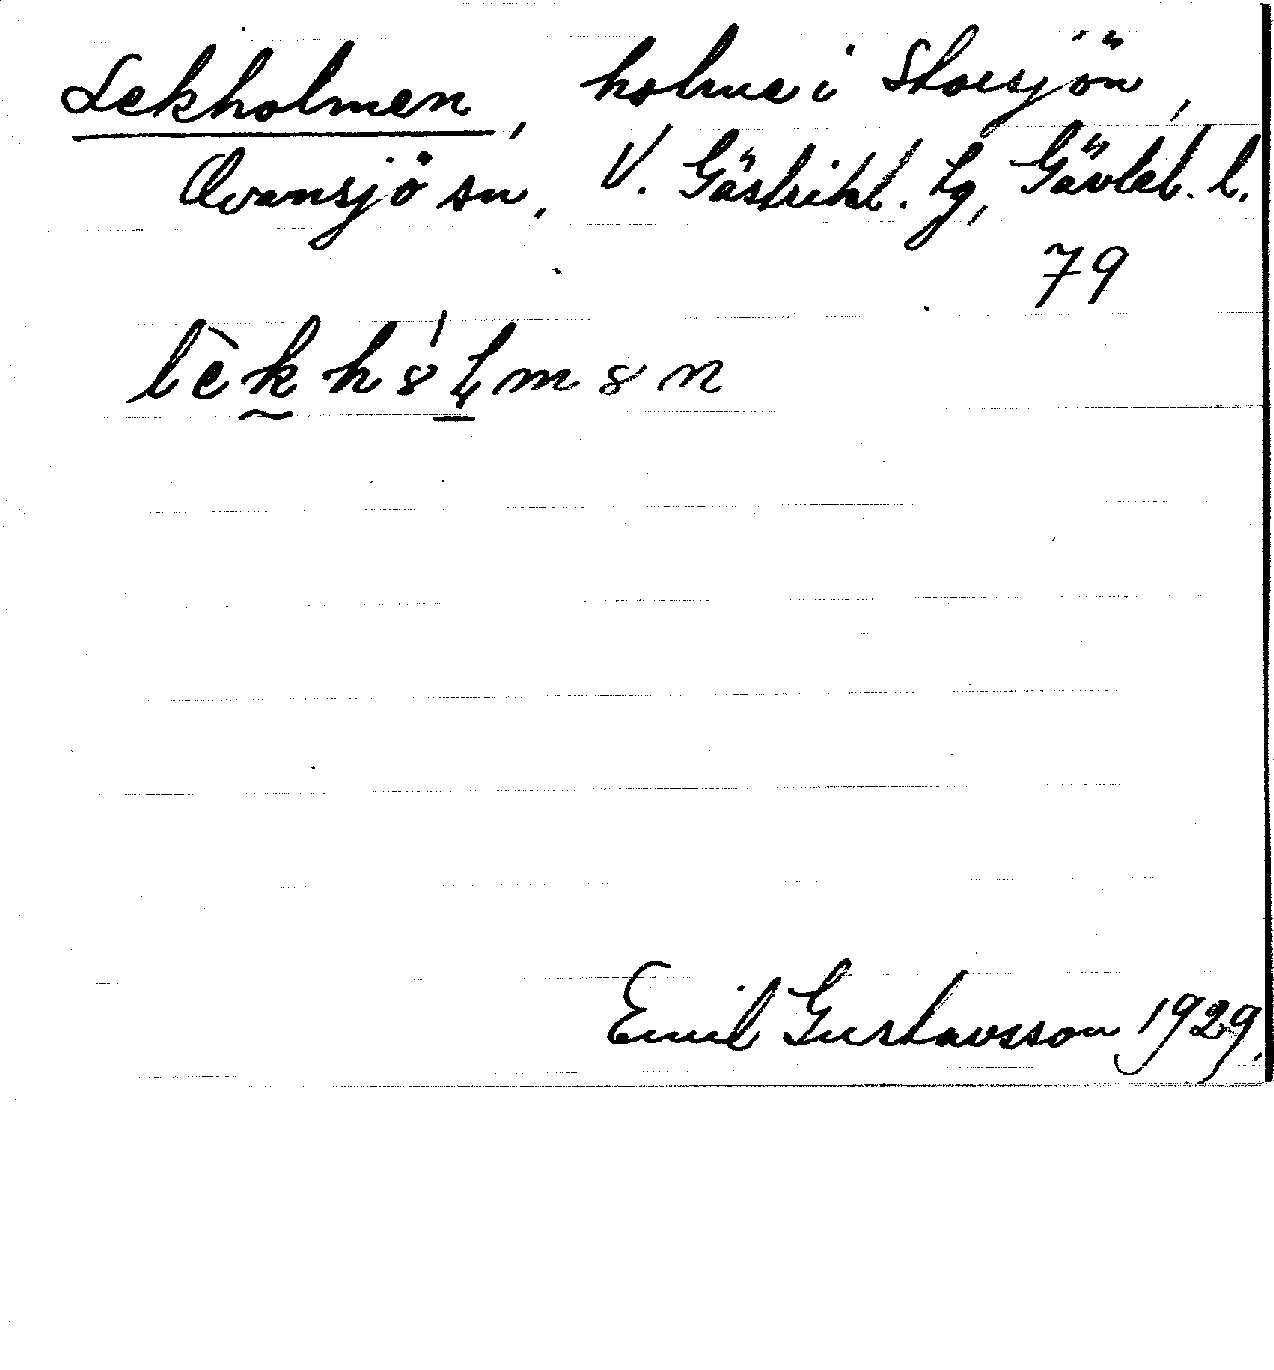 Lekholmen, holme i Storsjön,
Ovansjö sn, V. Gästrikl. tg, Gävleb. l.
79
Emil Gustavsson 1929.